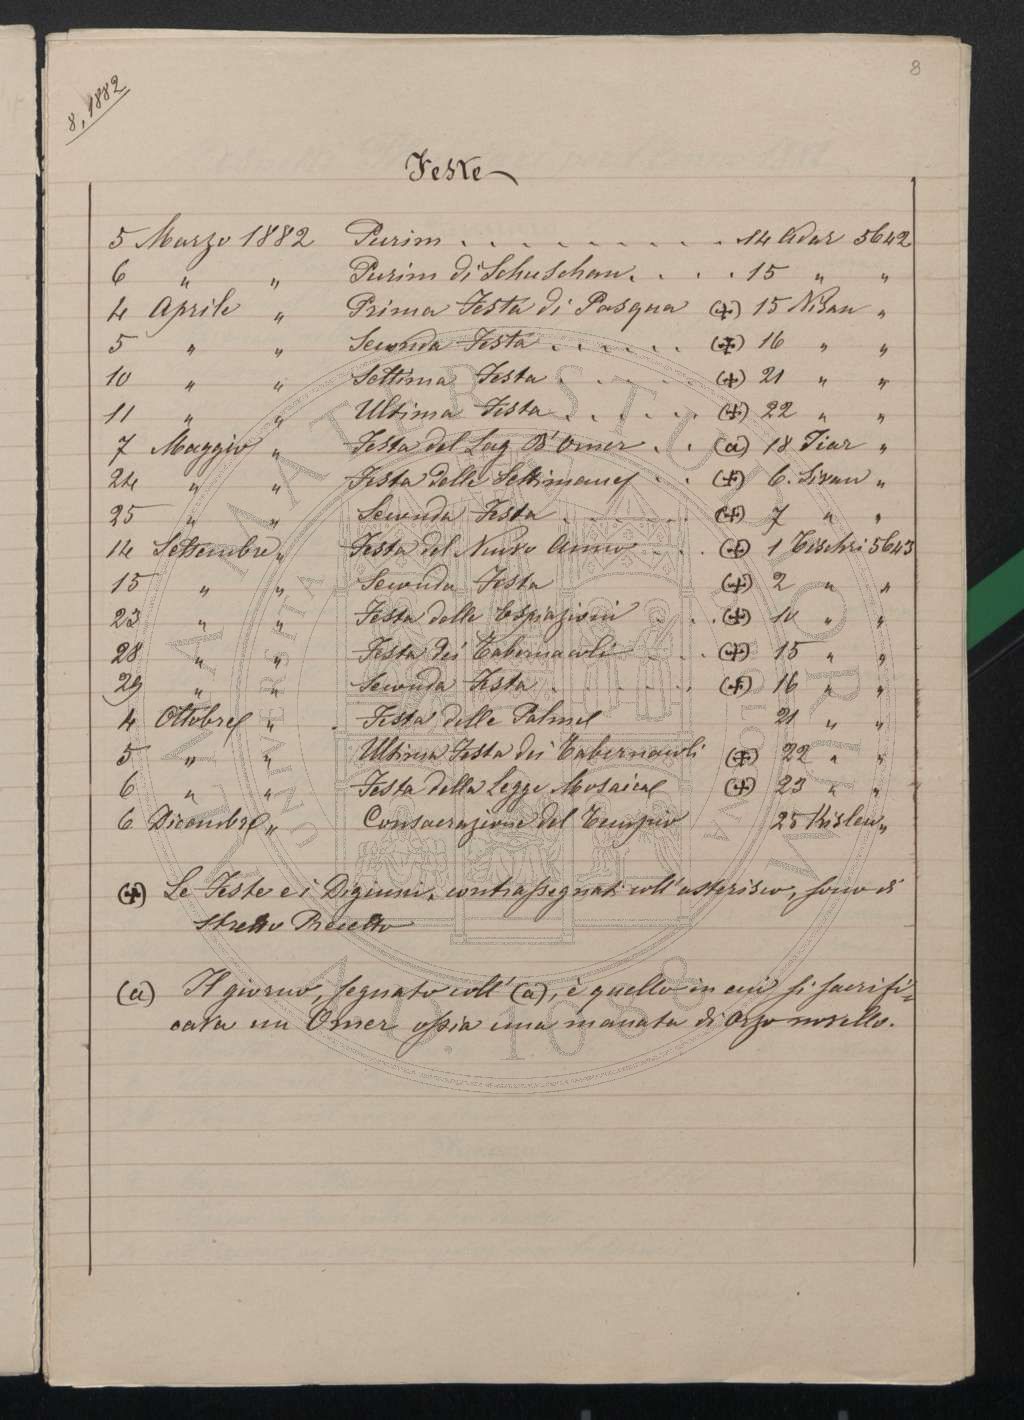 8
8, 1882
Feste
5 Marzo 1882 Purim . . . . . . . . . . 14 Adar 5642
6 " " Purim di Schuschan . . . . 15 " "
4 Aprile " Prima Festa di Pasqua (+) 15 Nisan "
5 " " Seconda Festa . . . . . . (+) 16 " "
10 " " Settima Festa . . . . . . (+) 21 " "
11 " " Ultima Festa . . . . . . (+) 22 " "
7 Maggio " Festa del Lag B'Omer . . (a) 18 Jiar "
24 " " Festa delle Settimane . . (+) 6. Sivan "
25 " " Seconda Festa . . . . . . (+) 7 " "
14 Settembre " Festa del Nuovo Anno . . . . (+) 1 Tischri 5643
15 " " Seconda Festa (+) 2 " "
23 " " Festa delle Espiazioni . . . (+) 10 " "
28 " " Festa dei Tabernacoli . . . (+) 15 " "
29 " " Seconda Festa . . . . . . (+) 16 " "
4 Ottobre " . Festa delle Palme 21 " "
5 " " Ultima Festa dei Tabernacoli (+) 22 " "
6 " " Festa della Legge Mosaica (+) 23 " "
6 Dicembre " Consacrazione del Tempio 25 Kislew "
(+) Le Feste e i Digiuni, contrassegnati coll'asterisco, sono di
stretto Precetto
(a) Il giorno, segnato coll' (a), è quello in cui si sacrifi=
cava un Omer ossia una manata di orzo novello.
ALMA MATER STUDIORUM
UNIVERSITÀ DI BOLOGNA
A.D. 1088